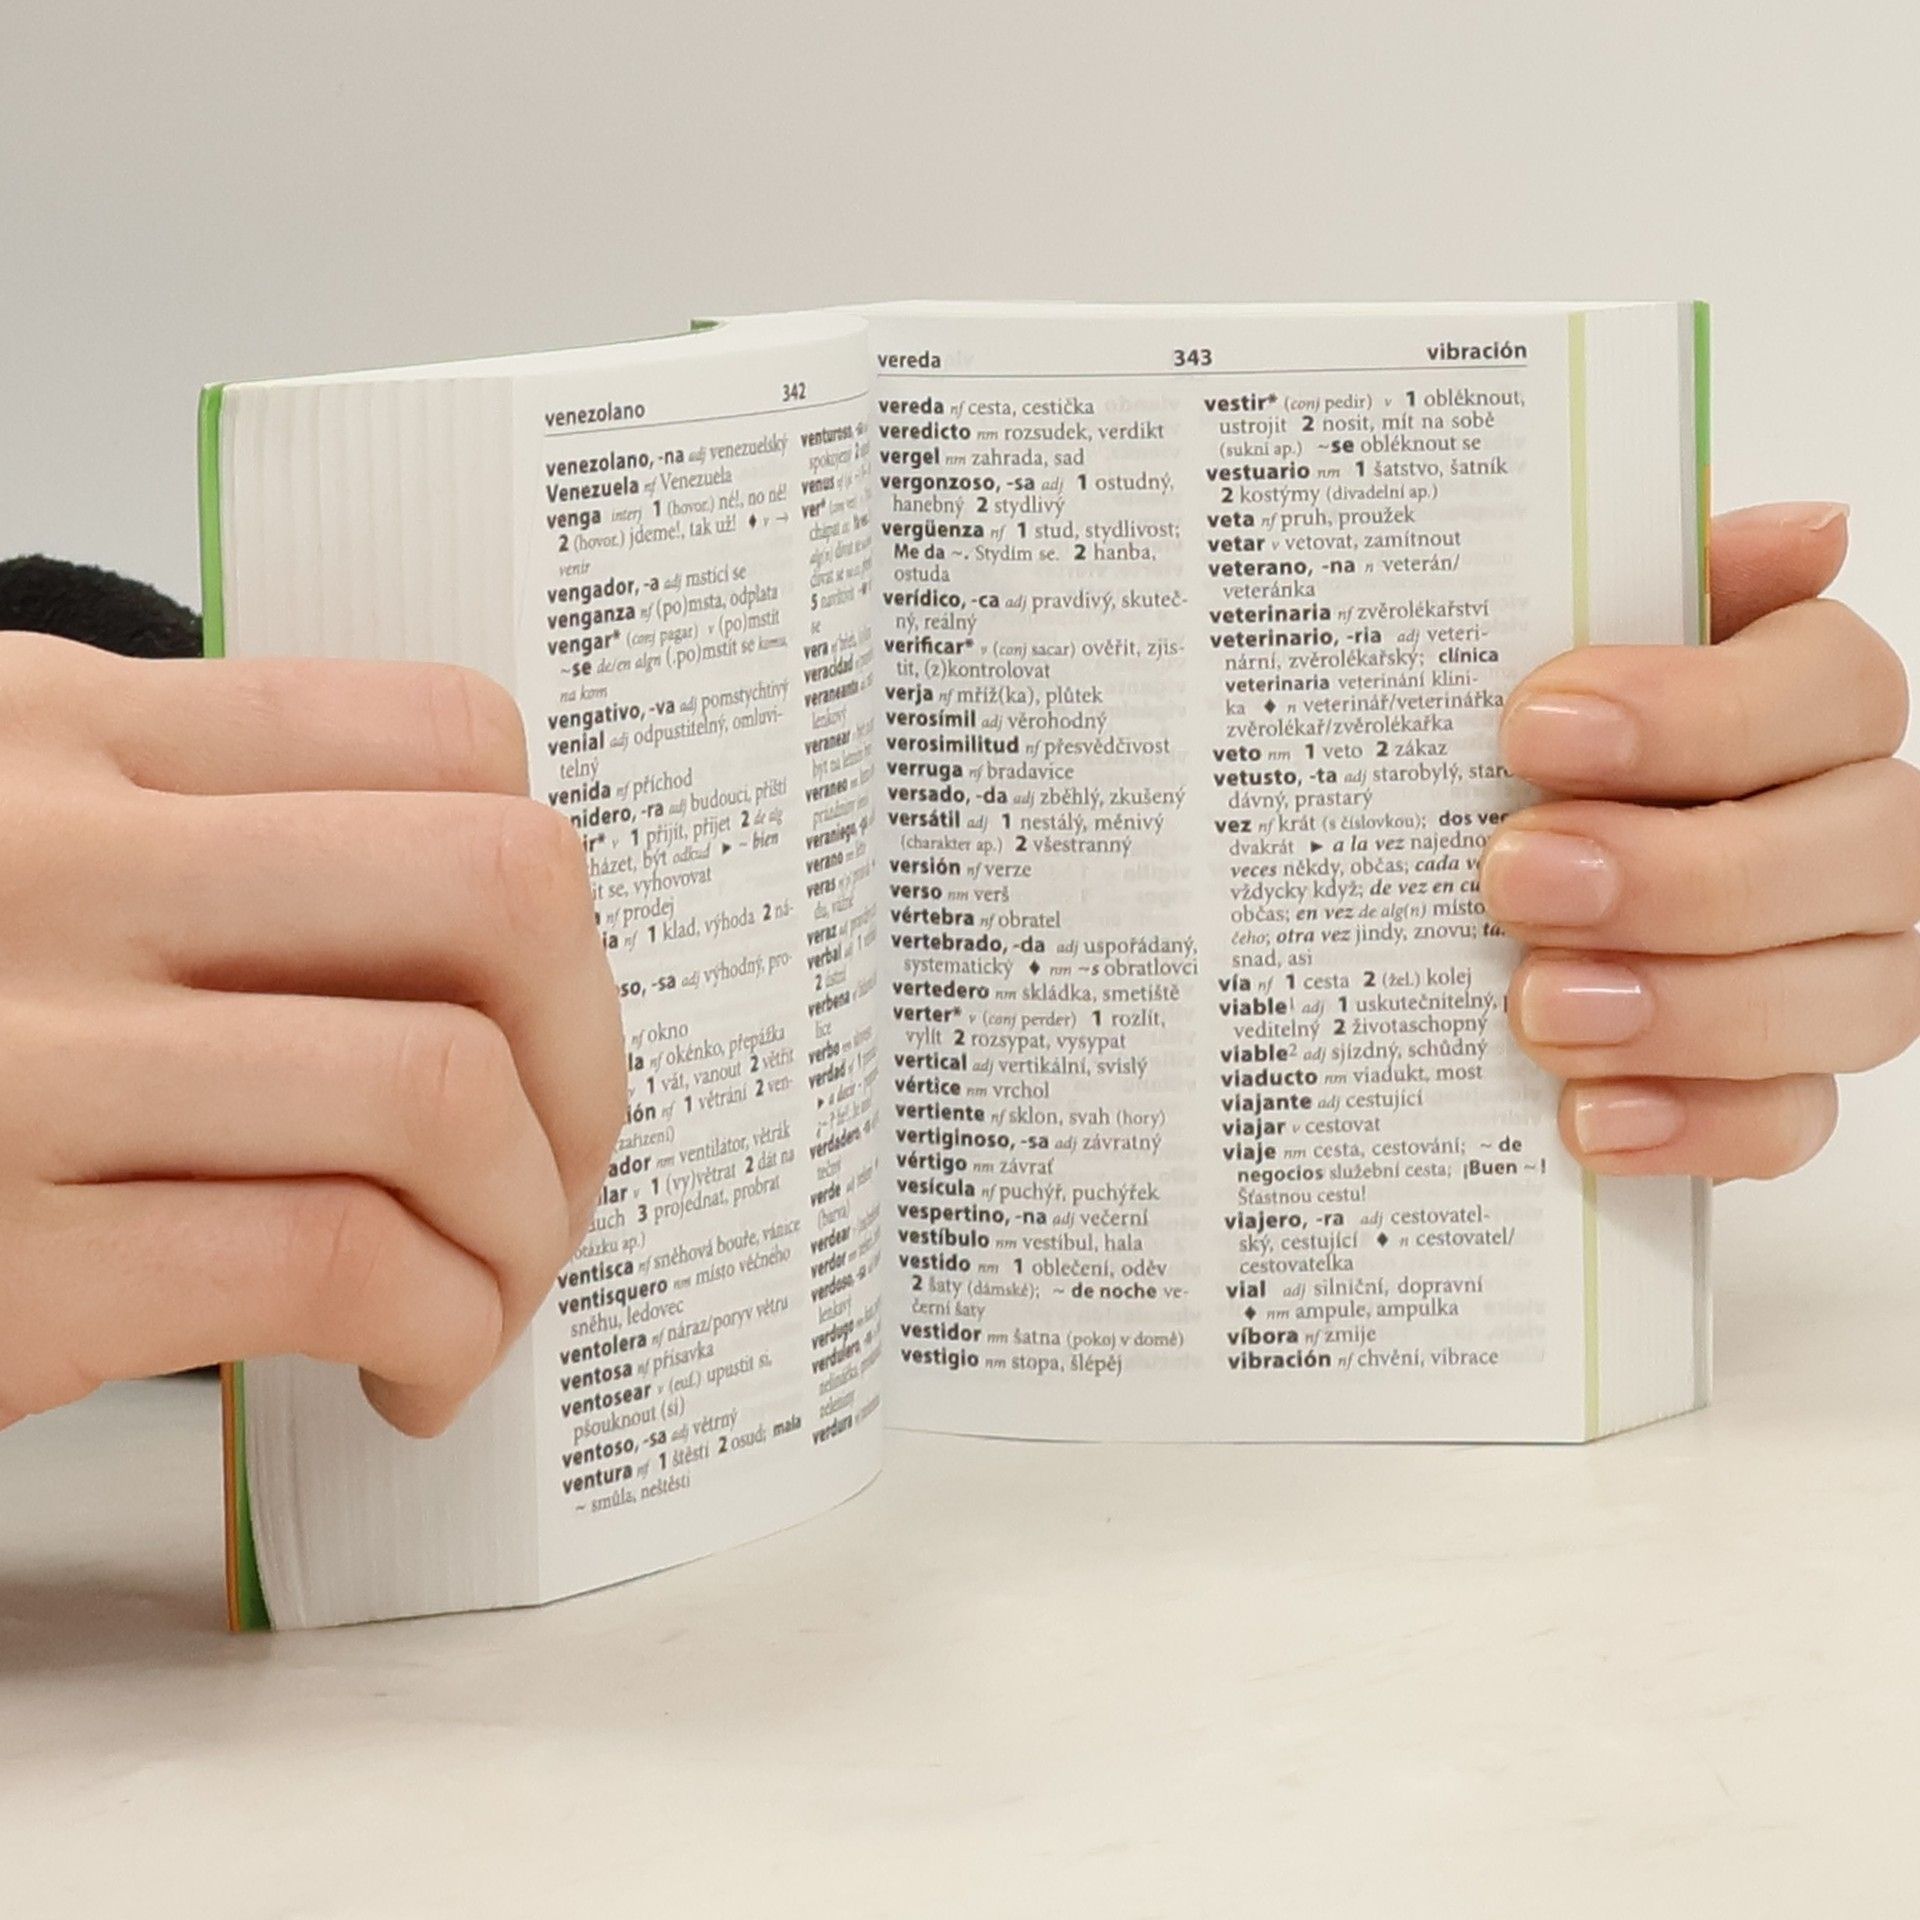 venezolano
342
venezolano, -na adj venezuelský
Venezuela nf Venezuela
venga interj 1 (hovor.) né!, no né!
2 (hovor.) jdeme!, tak už! ♦ v →
venir
vengador, -a adj mstící se
venganza nf (po)msta, odplata
vengar* (conj pagar) v (po)mstít
~se de/en algn (po)mstít se komu,
na kom
vengativo, -va adj pomstychtivý
venial adj odpustitelný, omluvi-
telný
venida nf příchod
nidero, -ra adj budoucí, příští
ir* v 1 přijít, přijet 2 de alg
cházet, být odkud ► ~ bien
it se, vyhovovat
nf prodej
ia nf 1 klad, výhoda 2 ná-
so, -sa adj výhodný, pro-
nf okno
la nf okénko, přepážka
v 1 vát, vanout 2 větřit
ión nf 1 větrání 2 ven-
zařízení)
ador nm ventilátor, větrák
lar v 1 (vy)větrat 2 dát na
3 projednat, probrat
otázku ap.)
ventisca nf sněhová bouře, vánice
ventisquero nm místo věčného
sněhu, ledovec
ventolera nf náraz/poryv větru
ventosa nf přísavka
ventosear v (euf.) upustit si,
pšouknout (si)
ventoso, -sa adj větrný
ventura nf 1 štěstí 2 osud; mala
~ smůla, neštěstí
venus
ver*
vera
veracidad
veranear
veraneo
verano
veras
veraz
verbal
verbena
verbo
verdad
verde
(barva)
verdear
verdor
verdura
vereda
343
vibración
vereda nf cesta, cestička
veredicto nm rozsudek, verdikt
vergel nm zahrada, sad
vergonzoso, -sa adj 1 ostudný,
hanebný 2 stydlivý
vergüenza nf 1 stud, stydlivost;
Me da ~. Stydím se. 2 hanba,
ostuda
verídico, -ca adj pravdivý, skuteč-
ný, reálný
verificar* v (conj sacar) ověřit, zjis-
tit, (z)kontrolovat
verja nf mříž(ka), plůtek
verosímil adj věrohodný
verosimilitud nf přesvědčivost
verruga nf bradavice
versado, -da adj zběhlý, zkušený
versátil adj 1 nestálý, měnivý
(charakter ap.) 2 všestranný
versión nf verze
verso nm verš
vértebra nf obratel
vertebrado, -da adj uspořádaný,
systematický ♦ nm ~s obratlovci
vertedero nm skládka, smetiště
verter* v (conj perder) 1 rozlít,
vylít 2 rozsypat, vysypat
vertical adj vertikální, svislý
vértice nm vrchol
vertiente nf sklon, svah (hory)
vertiginoso, -sa adj závratný
vértigo nm závrať
vesícula nf puchýř, puchýřek
vespertino, -na adj večerní
vestíbulo nm vestibul, hala
vestido nm 1 oblečení, oděv
2 šaty (dámské); ~ de noche ve-
černí šaty
vestidor nm šatna (pokoj v domě)
vestigio nm stopa, šlépěj
vestir* (conj pedir) v 1 obléknout,
ustrojit 2 nosit, mít na sobě
(sukni ap.) ~se obléknout se
vestuario nm 1 šatstvo, šatník
2 kostýmy (divadelní ap.)
veta nf pruh, proužek
vetar v vetovat, zamítnout
veterano, -na n veterán/
veteránka
veterinaria nf zvěrolékařství
veterinario, -ria adj veteri-
nární, zvěrolékařský; clínica
veterinaria veterinání klini-
ka ♦ n veterinář/veterinářka
zvěrolékař/zvěrolékařka
veto nm 1 veto 2 zákaz
vetusto, -ta adj starobylý, staro
dávný, prastarý
vez nf krát (s číslovkou); dos
dvakrát ► a la vez
veces někdy, občas; cada
vždycky když; de vez en
občas; en vez de alg(n) místo
čeho; otra vez jindy, znovu;
snad, asi
vía nf 1 cesta 2 (žel.) kolej
viable1 adj 1 uskutečnitelný,
veditelný 2 životaschopný
viable2 adj sjízdný, schůdný
viaducto nm viadukt, most
viajante adj cestující
viajar v cestovat
viaje nm cesta, cestování; ~ de
negocios služební cesta; ¡Buen ~!
Šťastnou cestu!
viajero, -ra adj cestovatel-
ský, cestující ♦ n cestovatel/
cestovatelka
vial adj silniční, dopravní
♦ nm ampule, ampulka
víbora nf zmije
vibración nf chvění, vibrace